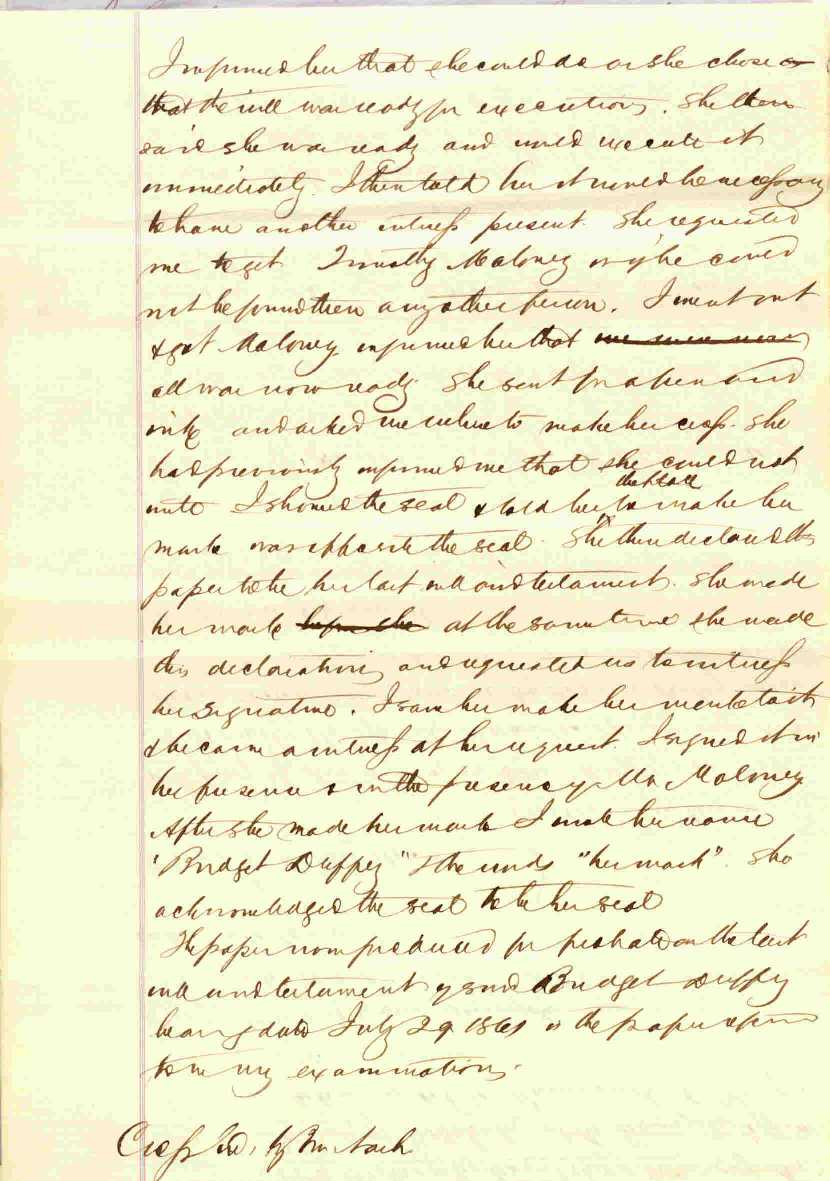 I informed her that she could do as she chose or
that the will was ready for execution. She then
said she was ready and would execute it
immediately. I then told her it would be necessary
to have another witness present. She requested
me to get Timothy Maloney or if he could
not be found then any other person. I went out
& got Maloney informed her that
all was now ready. She sent for a pen and
ink and asked me where to make her cross. She
had previously informed me that she could not
write I showed the seal & told her the place to make her
mark was opposite the seal. She then declared the
paper to be her last will and testament. She made
her mark before she at the same time she made
this declaration and requested us to witness
her signature. I saw her make her mark to it
& became a witness at her request. I signed it in
her presence & in the presence of Mr Maloney
After she made her mark I wrote her name
"Bridget Duffey" & the words "her mark". She
acknowledged the seal to be her seal
The paper now produced for probate as the last
will and testament of said Bridget Duffey
bearing date July 29 1861 is the paper referred
to in my examination.
Cross Exd. by Mr